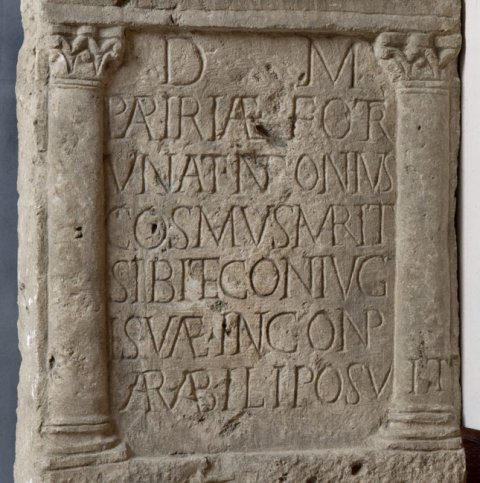 D M
PATRIÆ FORT
VNAT·ANTONIVS
COSMVS MARIT
SIBI ET CONIVG
I SVÆ·INCONP
ARABILI POSVIT